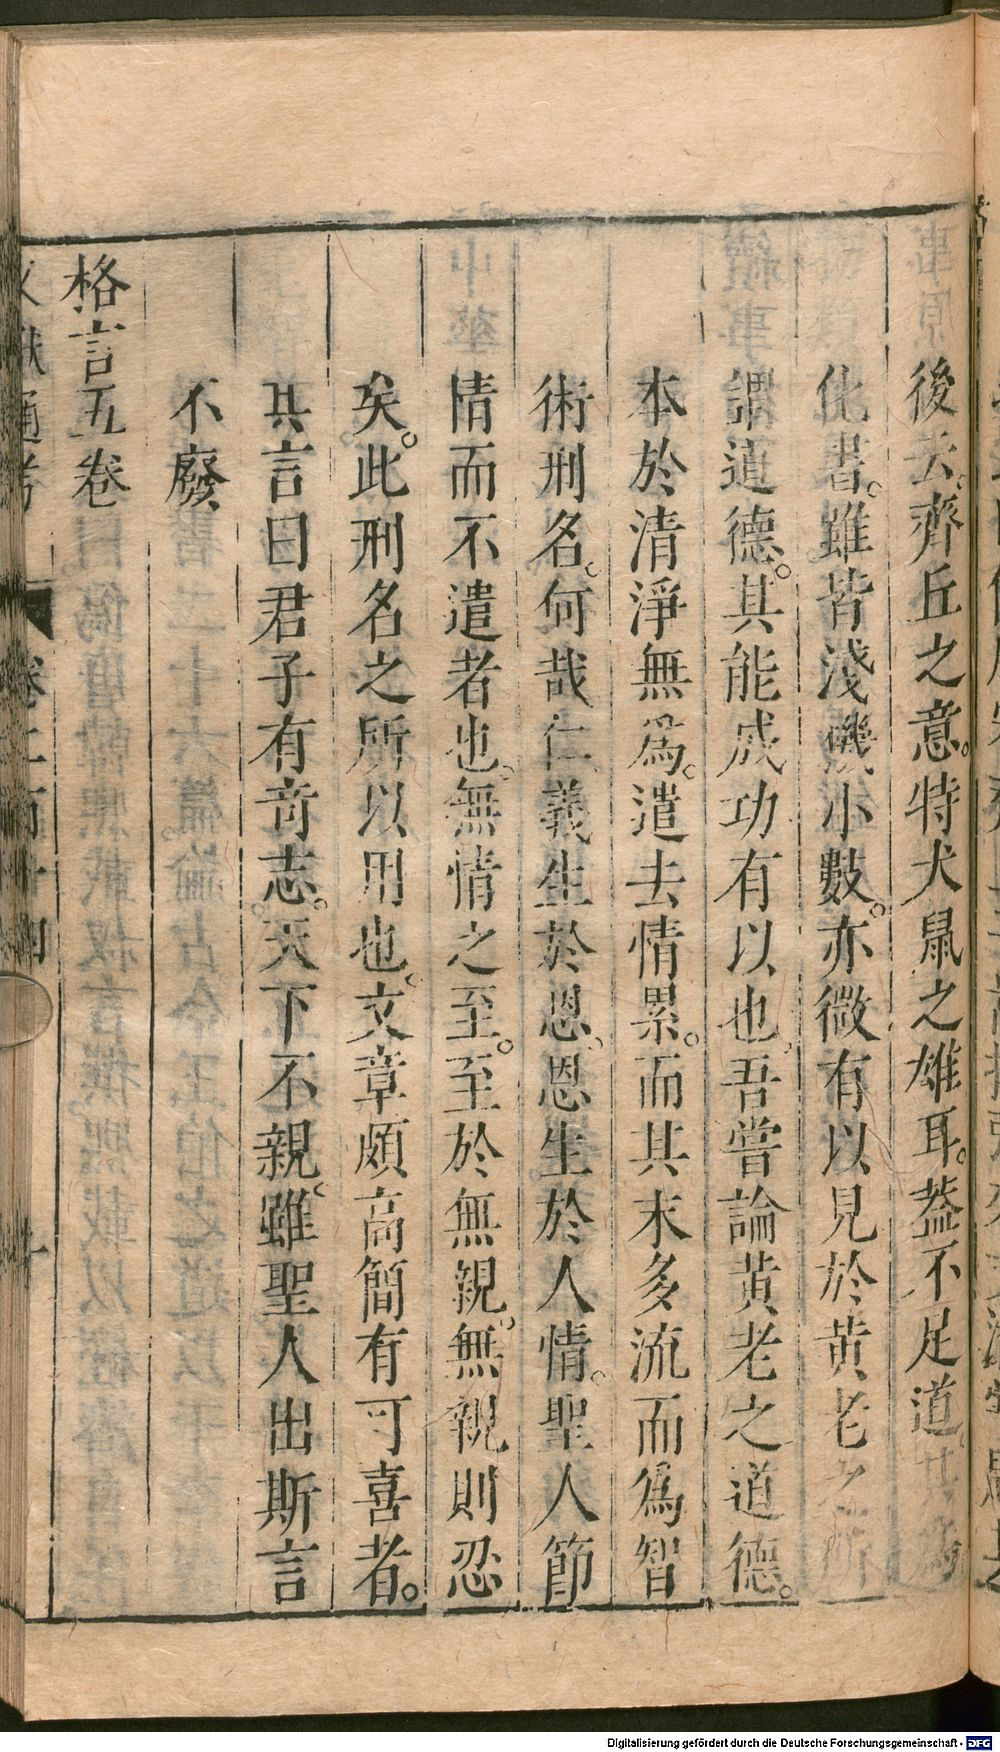 後去。齊丘之意。特犬鼠之雄耳。葢不足道。其爲
化書。雖皆淺機小數。亦微有以見於黄老之所
謂道德。其能成功有以也。吾嘗論黄老之道德。
本於清淨無爲。遣去情累。而其末多流而爲智
術刑名。何哉仁義生於恩。恩生於人情。聖人節
情而不遣者也。無情之至。至於無親。無親則忍
矣。此刑名之所以用也。文章頗高簡有可喜者。
其言曰君子有竒志。天下不親。雖聖人出斯言
不廢
格言五卷
文獻通考 卷二百十四 十
Digitalisierung gefördert durch die Deutsche Forschungsgemeinschaft - DFG